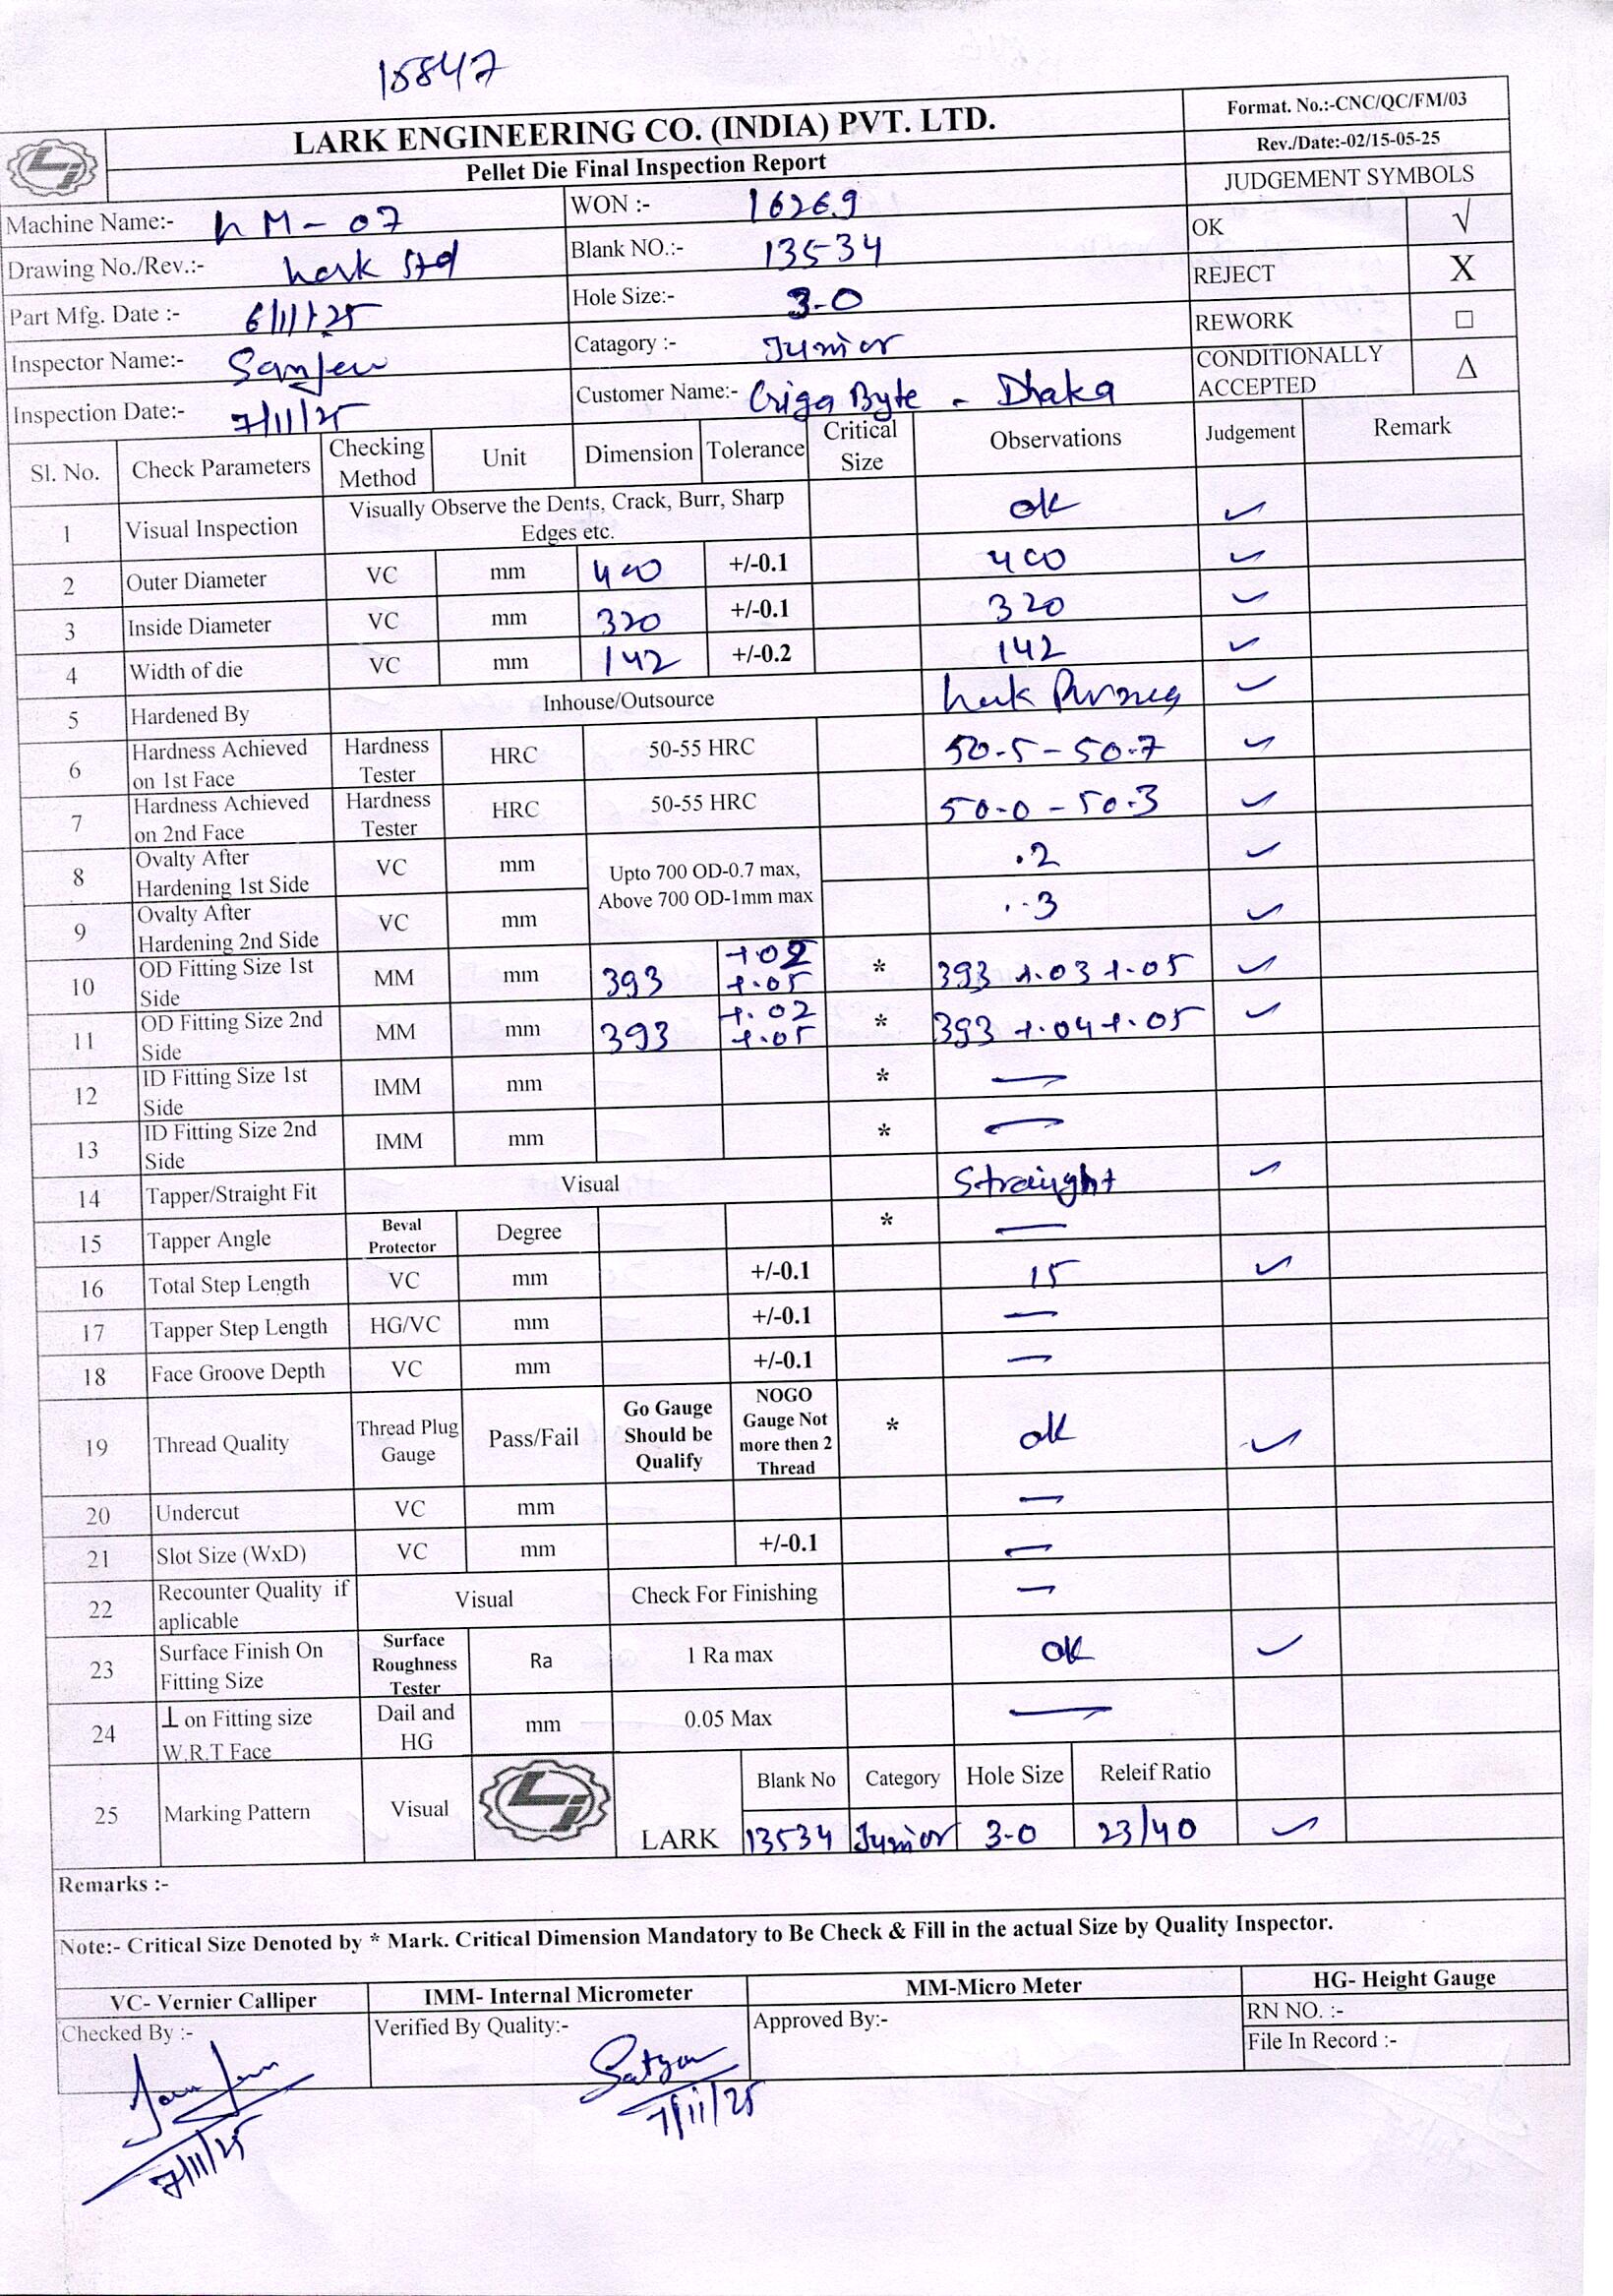 15847
LARK ENGINEERING CO. (INDIA) PVT. LTD.
Pellet Die Final Inspection Report
Format. No.:-CNC/QC/FM/03
Rev./Date:-02/15-05-25
JUDGEMENT SYMBOLS
OK √
REJECT X
REWORK □
CONDITIONALLY ACCEPTED Δ
Machine Name:- LM-07
WON :- 16269
Drawing No./Rev.:- Lark Std
Blank NO.:- 13534
Part Mfg. Date :- 6/11/25
Hole Size:- 3.0
Inspector Name:- Sanjeev
Catagory :- Junior
Inspection Date:- 7/11/25
Customer Name:- Byte - Dhaka
Sl. No. Check Parameters Checking Method Unit Dimension Tolerance Critical Size Observations Judgement Remark
1 Visual Inspection Visually Observe the Dents, Crack, Burr, Sharp Edges etc. ok ✓
2 Outer Diameter VC mm 400 +/-0.1 400 ✓
3 Inside Diameter VC mm 320 +/-0.1 320 ✓
4 Width of die VC mm 142 +/-0.2 142 ✓
5 Hardened By Inhouse/Outsource Lark ✓
6 Hardness Achieved on 1st Face Hardness Tester HRC 50-55 HRC 50.5-50.7 ✓
7 Hardness Achieved on 2nd Face Hardness Tester HRC 50-55 HRC 50.0-50.3 ✓
8 Ovalty After Hardening 1st Side VC mm Upto 700 OD-0.7 max, Above 700 OD-1mm max .2 ✓
9 Ovalty After Hardening 2nd Side VC mm .3 ✓
10 OD Fitting Size 1st Side MM mm 393 +.02 +.05 * 393 +.03 +.05 ✓
11 OD Fitting Size 2nd Side MM mm 393 +.02 +.05 * 393 +.04 +.05 ✓
12 ID Fitting Size 1st Side IMM mm * —
13 ID Fitting Size 2nd Side IMM mm * —
14 Tapper/Straight Fit Visual Straight ✓
15 Tapper Angle Beval Protector Degree * —
16 Total Step Length VC mm +/-0.1 15 ✓
17 Tapper Step Length HG/VC mm +/-0.1 —
18 Face Groove Depth VC mm +/-0.1 —
19 Thread Quality Thread Plug Gauge Pass/Fail Go Gauge Should be Qualify NOGO Gauge Not more then 2 Thread * ok ✓
20 Undercut VC mm —
21 Slot Size (WxD) VC mm +/-0.1 —
22 Recounter Quality if aplicable Visual Check For Finishing —
23 Surface Finish On Fitting Size Surface Roughness Tester Ra 1 Ra max ok ✓
24 ⊥ on Fitting size W.R.T Face Dail and HG mm 0.05 Max —
25 Marking Pattern Visual LARK
Blank No Category Hole Size Releif Ratio
13534 Junior 3.0 23/40 ✓
Remarks :-
Note:- Critical Size Denoted by * Mark. Critical Dimension Mandatory to Be Check & Fill in the actual Size by Quality Inspector.
VC- Vernier Calliper IMM- Internal Micrometer MM-Micro Meter HG- Height Gauge
Checked By :- Verified By Quality:- Approved By:- RN NO. :-
File In Record :-
7/11/25
Satyam
7/11/25